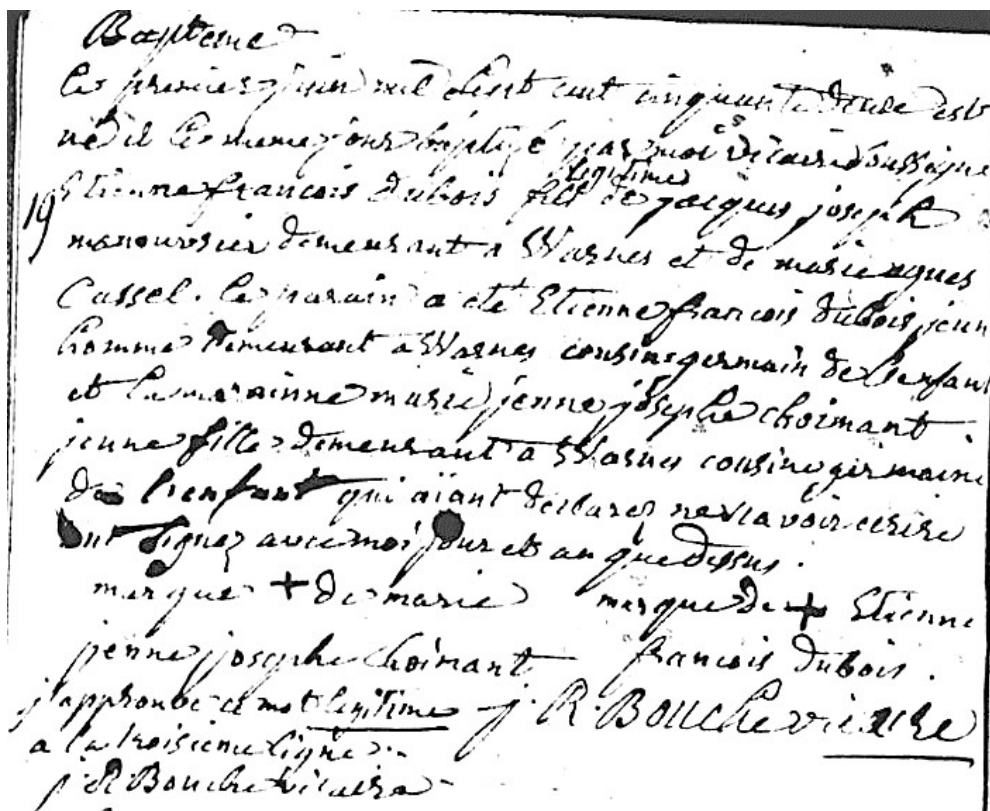 Bapteme
Le premier juin mil sept cent cinquante deux est
né et le meme jour baptizé par moi vicaire soussigné
19 Etienne francois dubois fils legitime de jacques joseph
manouvrier demeurant a Warnes et de marie agnes
Cassel. le parain a eté Etienne francois dubois jeun
homme demeurant a Warnes cousin germain de l'enfant
et la marainne marie jenne josephe choimant
jeune fille demeurant a Warnes cousine germaine
de l'enfant qui aïant declarez ne scavoir ecrire
ont signez avec moi jour et an que dessus.
marque + de marie marque de + Etienne
jenne josephe Choimant francois dubois.
j'approuve ce mot legitime j. R. Bouche vicaire
a la troisieme ligne
j R Bouche vicaire